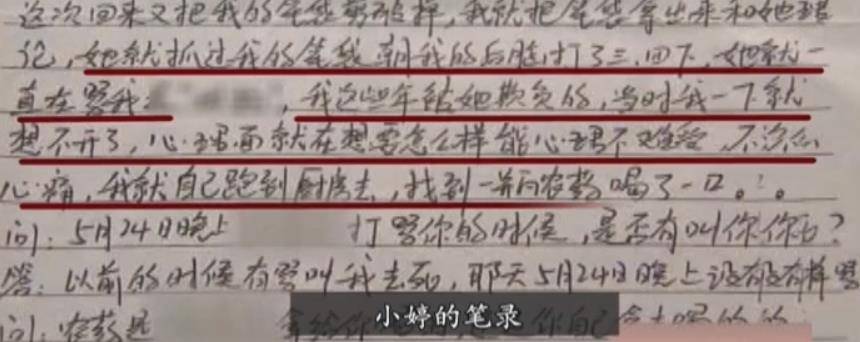 这次回来又把我的笔袋剪破样,我就把笔袋拿出来和她理
论,她就抓过我的笔袋朝我的后脑打了三、四下,她就一
直在骂我,我这些年给她欺负的,当时我一下就
想不开了,心里面就在想要怎么样能心里不难受,不这么
心痛,我就自己跑到厨房去,找到一瓶农药喝了一口。
问:5月24日晚上 打骂你的时候,是否有叫你
答:以前的时候有骂叫我去死,那天5月24日晚上没有这样骂
问:农药是 拿给你 你自己拿去喝的
小婷的笔录